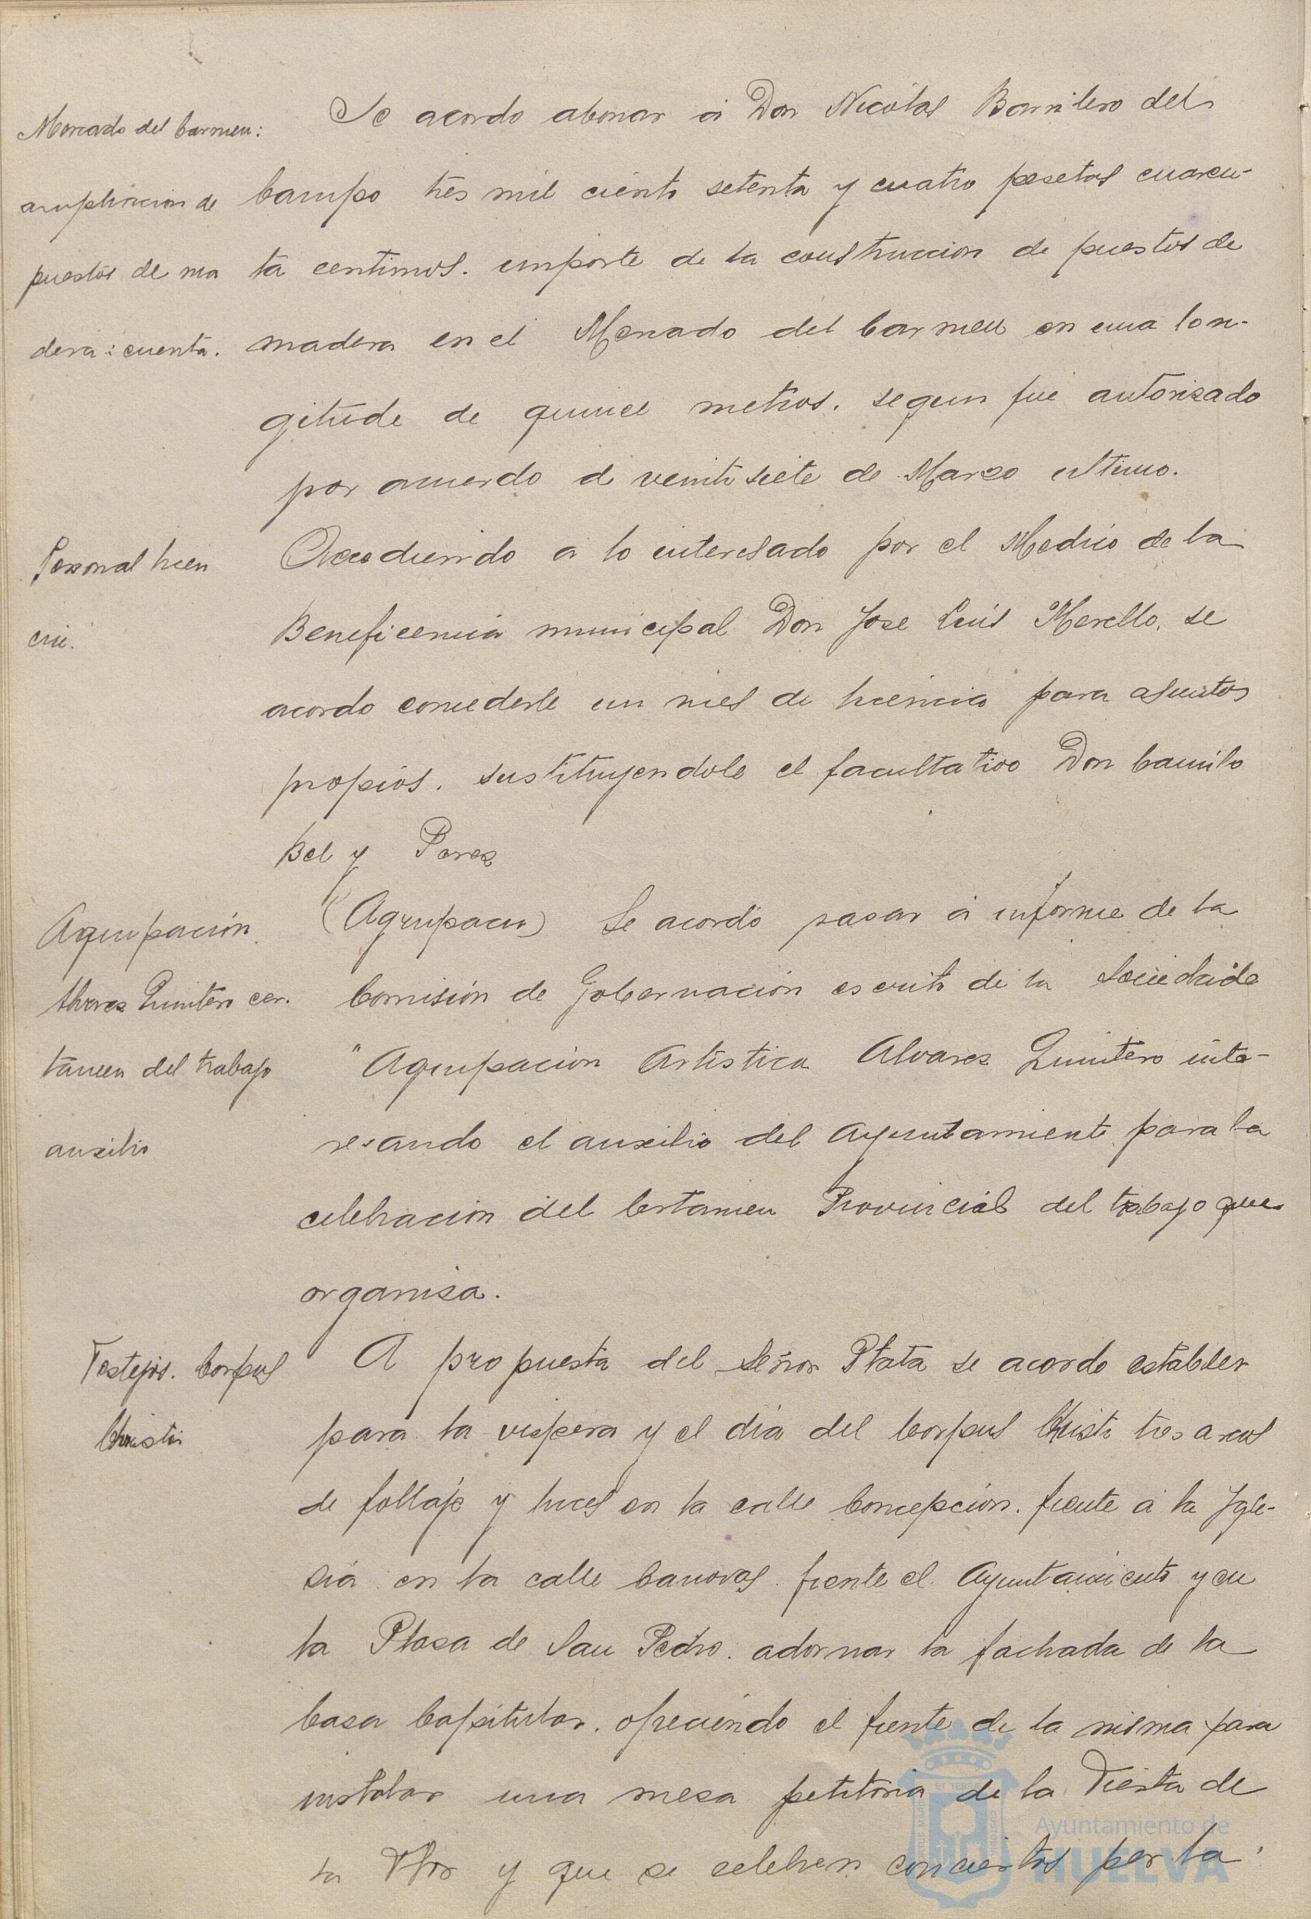 Mercado del Carmen:
ampliacion de
puestos de ma
dera: cuenta.
Se acordo abonar á Don Nicolas Barrilero del
Campo tres mil ciento setenta y cuatro pesetas cuaren-
ta centimos. importe de la construccion de puestos de
madera en el Mercado del Carmen en una lon-
gitude de quince metros. segun fué autorizado
por acuerdo de veintisiete de Marzo ultimo.
Personal licen
cia.
Accediendo a lo interesado por el Medico de la
Beneficencia municipal Don Jose Luis Morello, se
acordo concederle un mes de licencia para asuntos
propios. sustituyendole el facultativo Don Camilo
Bel y Perez
Agrupación
Alvarez Quintero cer.
tamen del trabajo
auxilio
(Agrupacn) Se acordó pasar á informe de la
Comisión de Gobernación escrito de la Sociedade
"Agrupacion Artistica Alvarez Quintero inte-
resando el auxilio del Ayuntamiento para la
celebracion del Certamen Provincial del trabajo que
organiza.
Festejos. Corpus
Christi
A propuesta del Señor Plata se acordo establer
para la vispera y el dia del Corpus Christi tres arcos
de follaje y luces en la calle Concepcion. frente á la Igle-
sia en la calle Canovas frente el Ayuntamiento y en
la Plaza de San Pedro. adornar la fachada de la
Casa Capitular. ofreciendo el frente de la misma para
instalar una mesa petitoria de la Fiesta de
la Flor y que se celebren conciertos por la
Ayuntamiento de
HUELVA